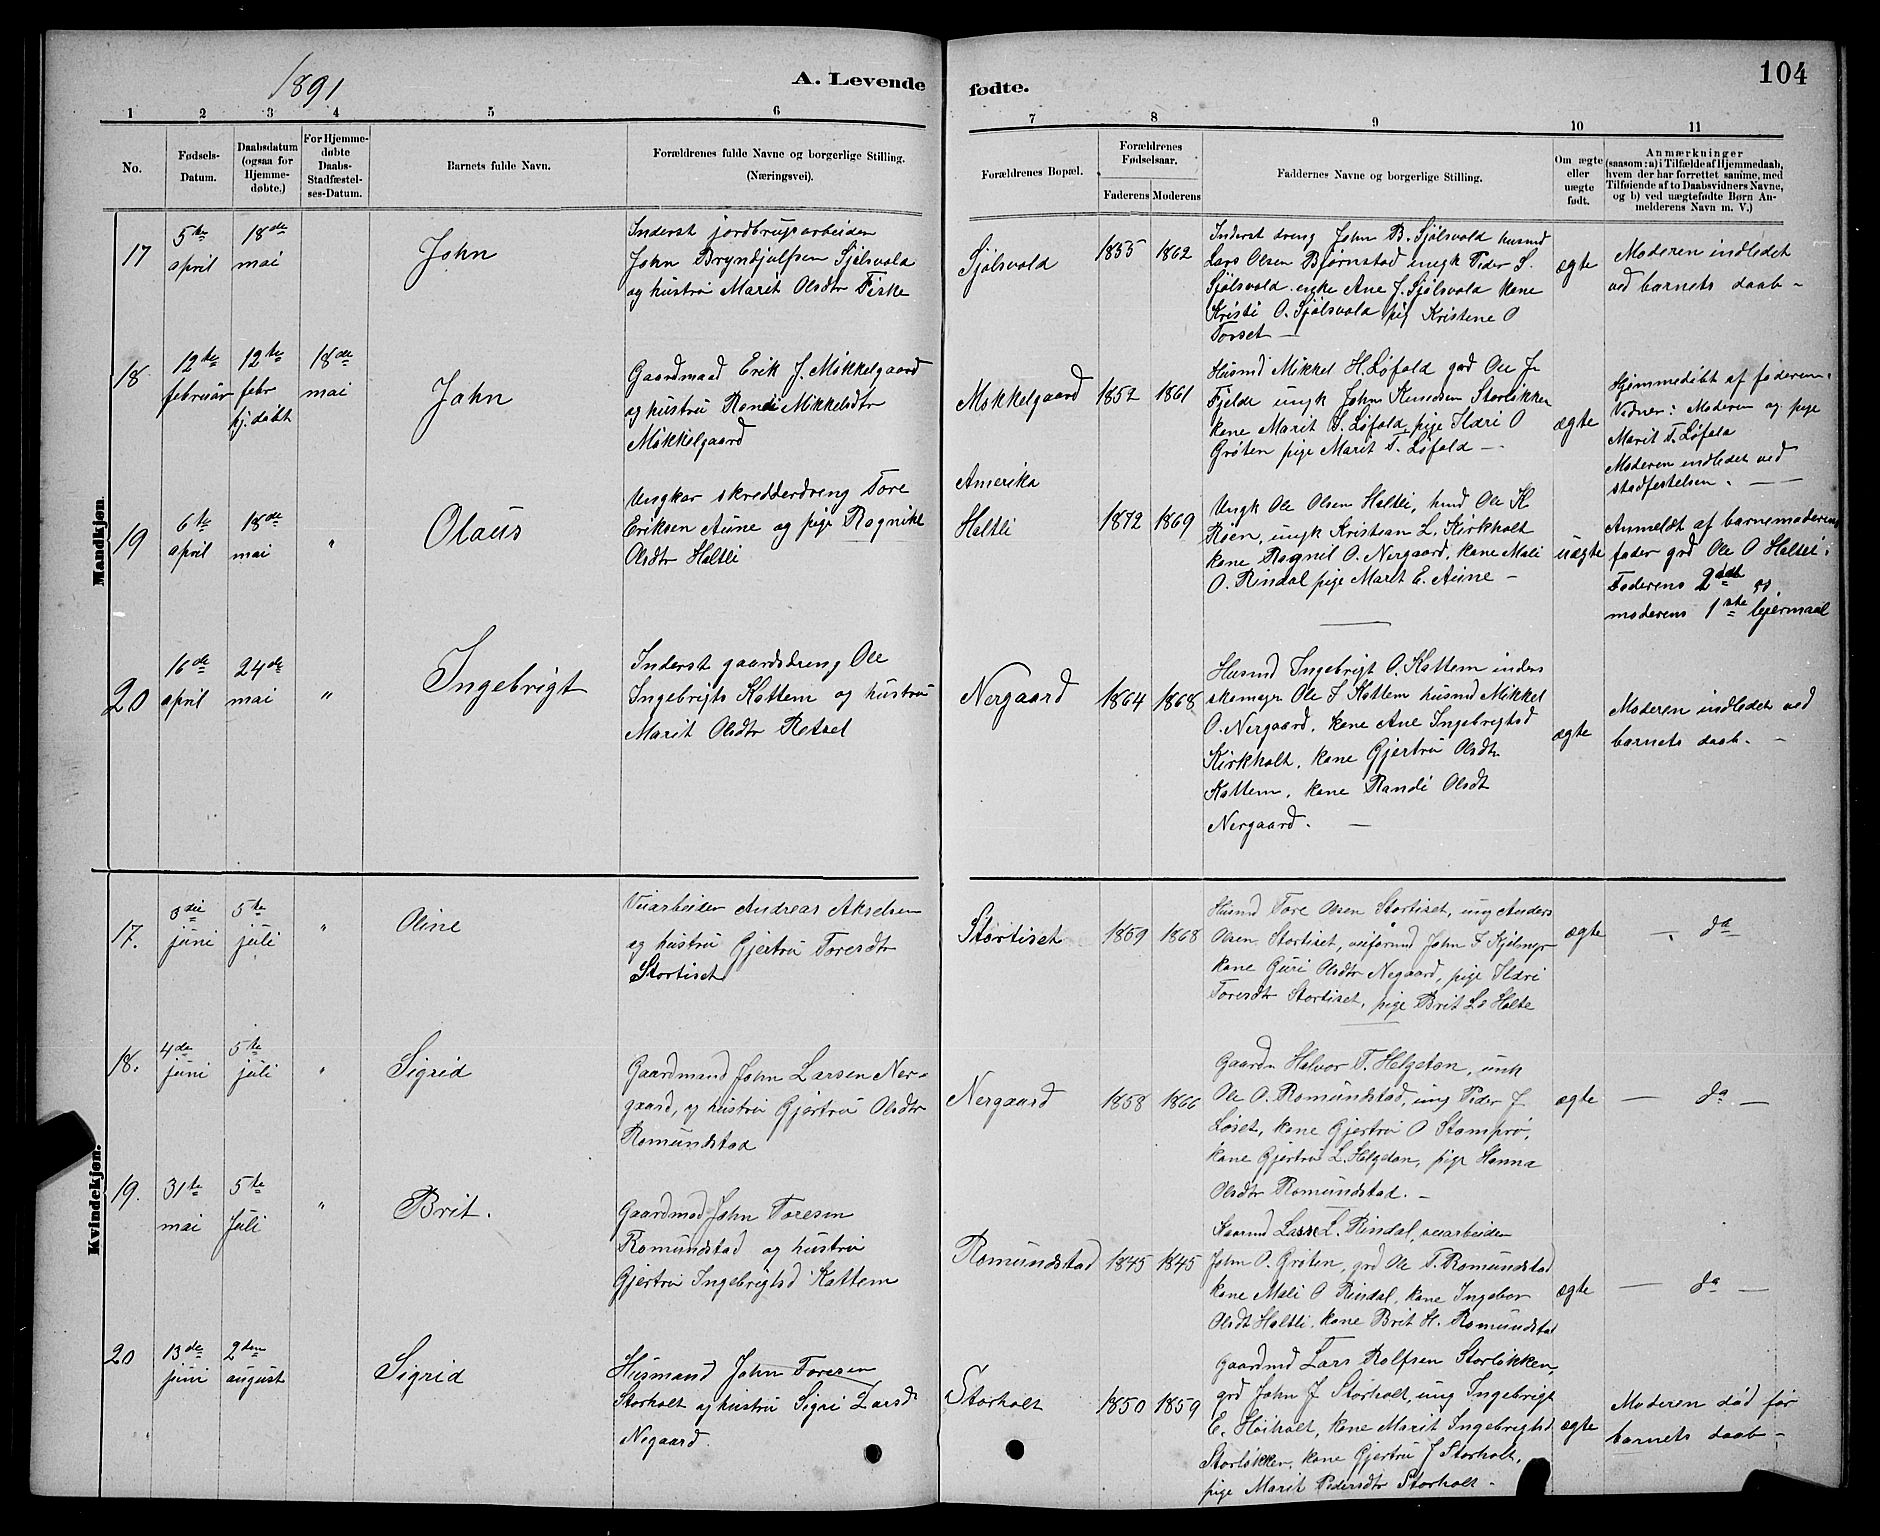 1891
A. Levende fødte.
104
1 2 3 4 5 6 7 8 9 10 11
No.
Fødsels-
Datum.
Daabsdatum
(ogsaa for
Hjemme-
døbte.)
For Hjemme-
døbte
Daabs-
Stadfæstel-
ses-Datum.
Barnets fulde Navn.
Forældrenes fulde Navne og borgerlige Stilling.
(Næringsvei).
Forældrenes Bopæl.
Forældrenes
Fødselsaar.
Faderens Moderens
Faddernes Navne og borgerlige Stilling.
Om ægte
eller
uægte
født.
Anmærkninger
(saasom: a) i Tilfælde af Hjemmedaab,
hvem der har forrettet samme, med
Tilføiende af to Daabsvidners Navne,
og b) ved uægtefødte Børn An-
melderens Navn m. V.)
Mandkjøn
17
5te
april
18de
mai
John
Inderst jordbrugsarbeider
John Bryndjulfsen Sjølsvold
og hustru Marit Olsdtr Fiske
Sjølsvold
1855 1862
Inderst dreng John B. Sjølsvold husmd
Lars Olsen Bjørnstad ungk Peder S.
Sjølsvold enke Ane J. Sjølsvold kone
Kristi O. Sjølsvold pig Kristene O
Torset —
ægte
Moderen indledet
ved barnets daab -
18
12te
februar
12te
febr
hj.døbt
18de
mai
John
Gaardmand Erik J. Mokkelgaard
og hustru Randi Mikkelsdtr
Mokkelgaard
Mokkelgaard
1852 1861
Husmd Mikkel H. Løfald grd Ole J.
Fjelde ungk John Knudsen Storløkken
kone Marit S. Løfald, pige Ildri O
Grøten pige Marit T. Løfald —
ægte
Hjemmedøbt af faderen.
Vidner: Moderen og pige
Marit T. Løfald
Moderen indledet ved
stadfestelsen. — —
19
6te
april
18de
mai
"
Olaus
Ungkar skrædderdreng Tore
Eriksen Aune og pige Rognild
Olsdtr Haltli
Amerika
Haltli
1872 1869
Ungk Ole Olsen Haltli, husd Ole K
Røen, ungk Kristian L. Kirkholt
kone Rognil O. Nergaard, kone Mali
O. Rindal pige Marit E. Aune —
uægte
Anmeldt af barnemoderens
fader grd Ole O Haltli:
Faderens 2det og
moderens 1ste leiermaal
20
16de
april
24de
mai
"
Ingebrigt
Inderst gaardsdreng Ole
Ingebrigts Kattem og hustru
Marit Olsdtr
Nergaard
1864 1868
Husmd Ingebrigt O. Kattem inders
skomagr Ole I Kattem husmd Mikkel
O. Nergaard, kone Ane Ingebrigtsd
Kirkholt, kone Gjertru Olsdtr
Kattem, kone Randi Olsdt
Nergaard. —
ægte
Moderen indledet ved
barnets daab. —
Kvindekjøn.
17.
3die
juni
5te
juli
"
Oline
Veiarbeider Andreas Akselsen
og hustru Gjertru Toresdtr
Stortiset
Stortiset
1859 1868
Husmd Tore Olsen Stortiset, ung Anders
Olsen Stortiset, veiformd John T Kjølmyr
kone Guri Olsdtr Negaard, pige Ildri
Toresdtr Stortiset, pige Brit Ls Halte
ægte
— do
18.
4de
juni
5te
juli
"
Sigrid
Gaardmand John Larsen Ner-
gaard, og hustru Gjertru Olsdtr
Romundstad
Nergaard
1858 1866
Gaardm Halvor T. Helgetan, unk
Ole O. Romundstad, ung Peder J
Løset, kone Gjertru O Stomprø,
kone Gjertru L. Helgetan, pige Hanna
Olsdtr Romundstad. —
ægte
— do —
19.
31te
mai
5te
Juli
"
Brit.
Gaardmd John Toresen
Romundstad og hustru
Gjertru Ingebrigtsd Kattem
Romundstad
1845 1845
Gaarmd Lasse L. Rindal, veiarbeider
John O. Grøten, grd Ole T. Romundstad
kone Mali O Rindal, kone Ingebor
Olsdt Haltli, kone Brit H. Romundstad
ægte
— do —
20
13de
juni
2den
august
Sigrid
Husmand John Toresen
Storholt og hustru Sigri Larsd
Negaard.
Storholt
1850 1859
Gaardmd Lars Rolfsen Storløkken,
grd John J Storholt, ung Ingebrigt
E. Høiholt, kone Marit Ingebrigtsd
Storløkken, kone Gjertru J Storholt,
pige Marit Pedersdtr Storholt -
ægte
Moderen død før
barnets daab -